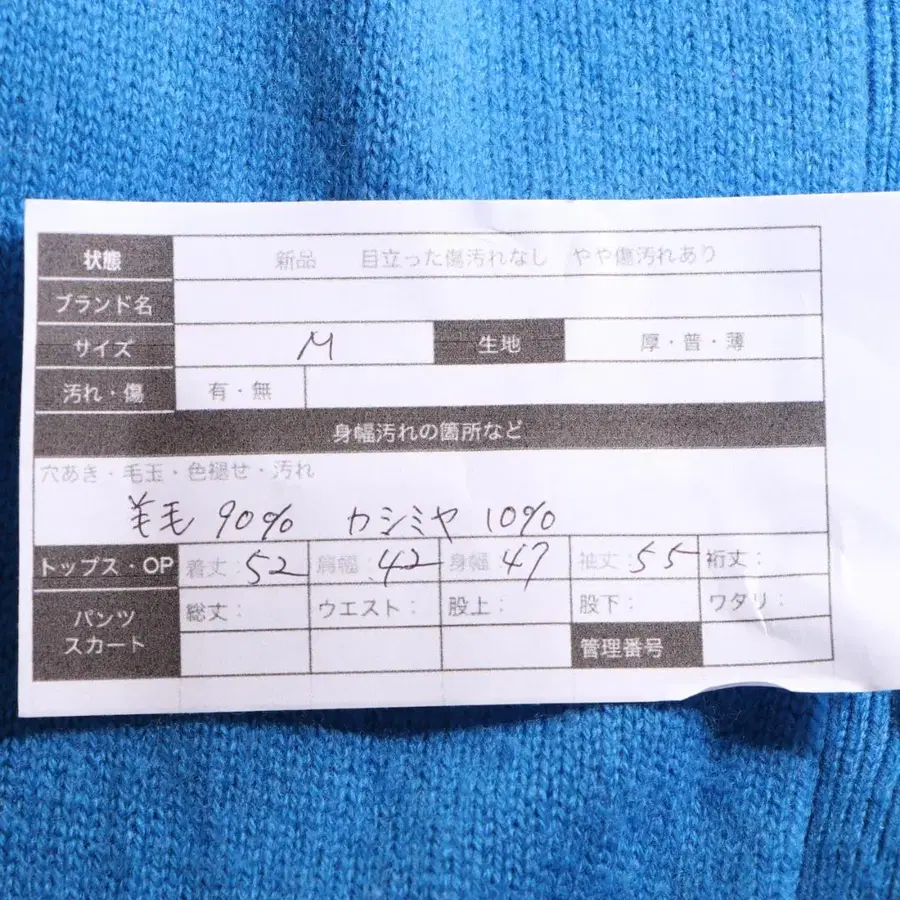 状態 新品 目立った傷汚れなし やや傷汚れあり
ブランド名
サイズ M 生地 厚・普・薄
汚れ・傷 有・無
身幅汚れの箇所など
穴あき・毛玉・色褪せ・汚れ
羊毛 90% カシミヤ 10%
トップス・OP 着丈：52 肩幅：42 身幅：47 袖丈：55 裄丈：
パンツ スカート 総丈： ウエスト： 股上： 股下： ワタリ：
管理番号